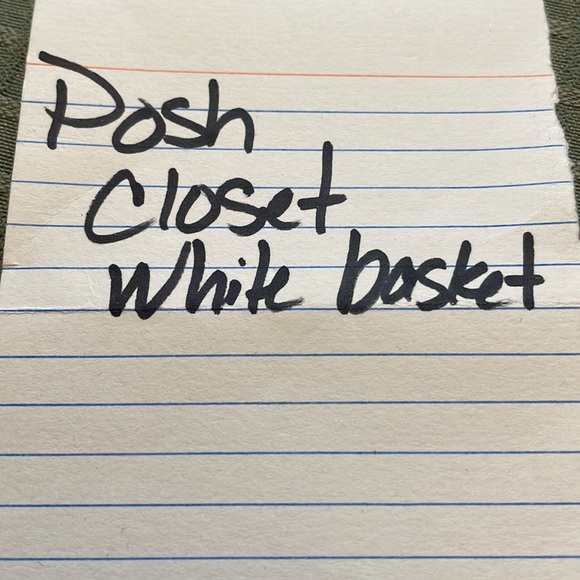 Posh
Closet
White basket